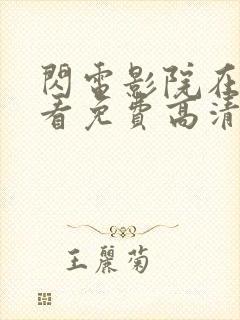 閃電影院在
看免費高清
王麗菊